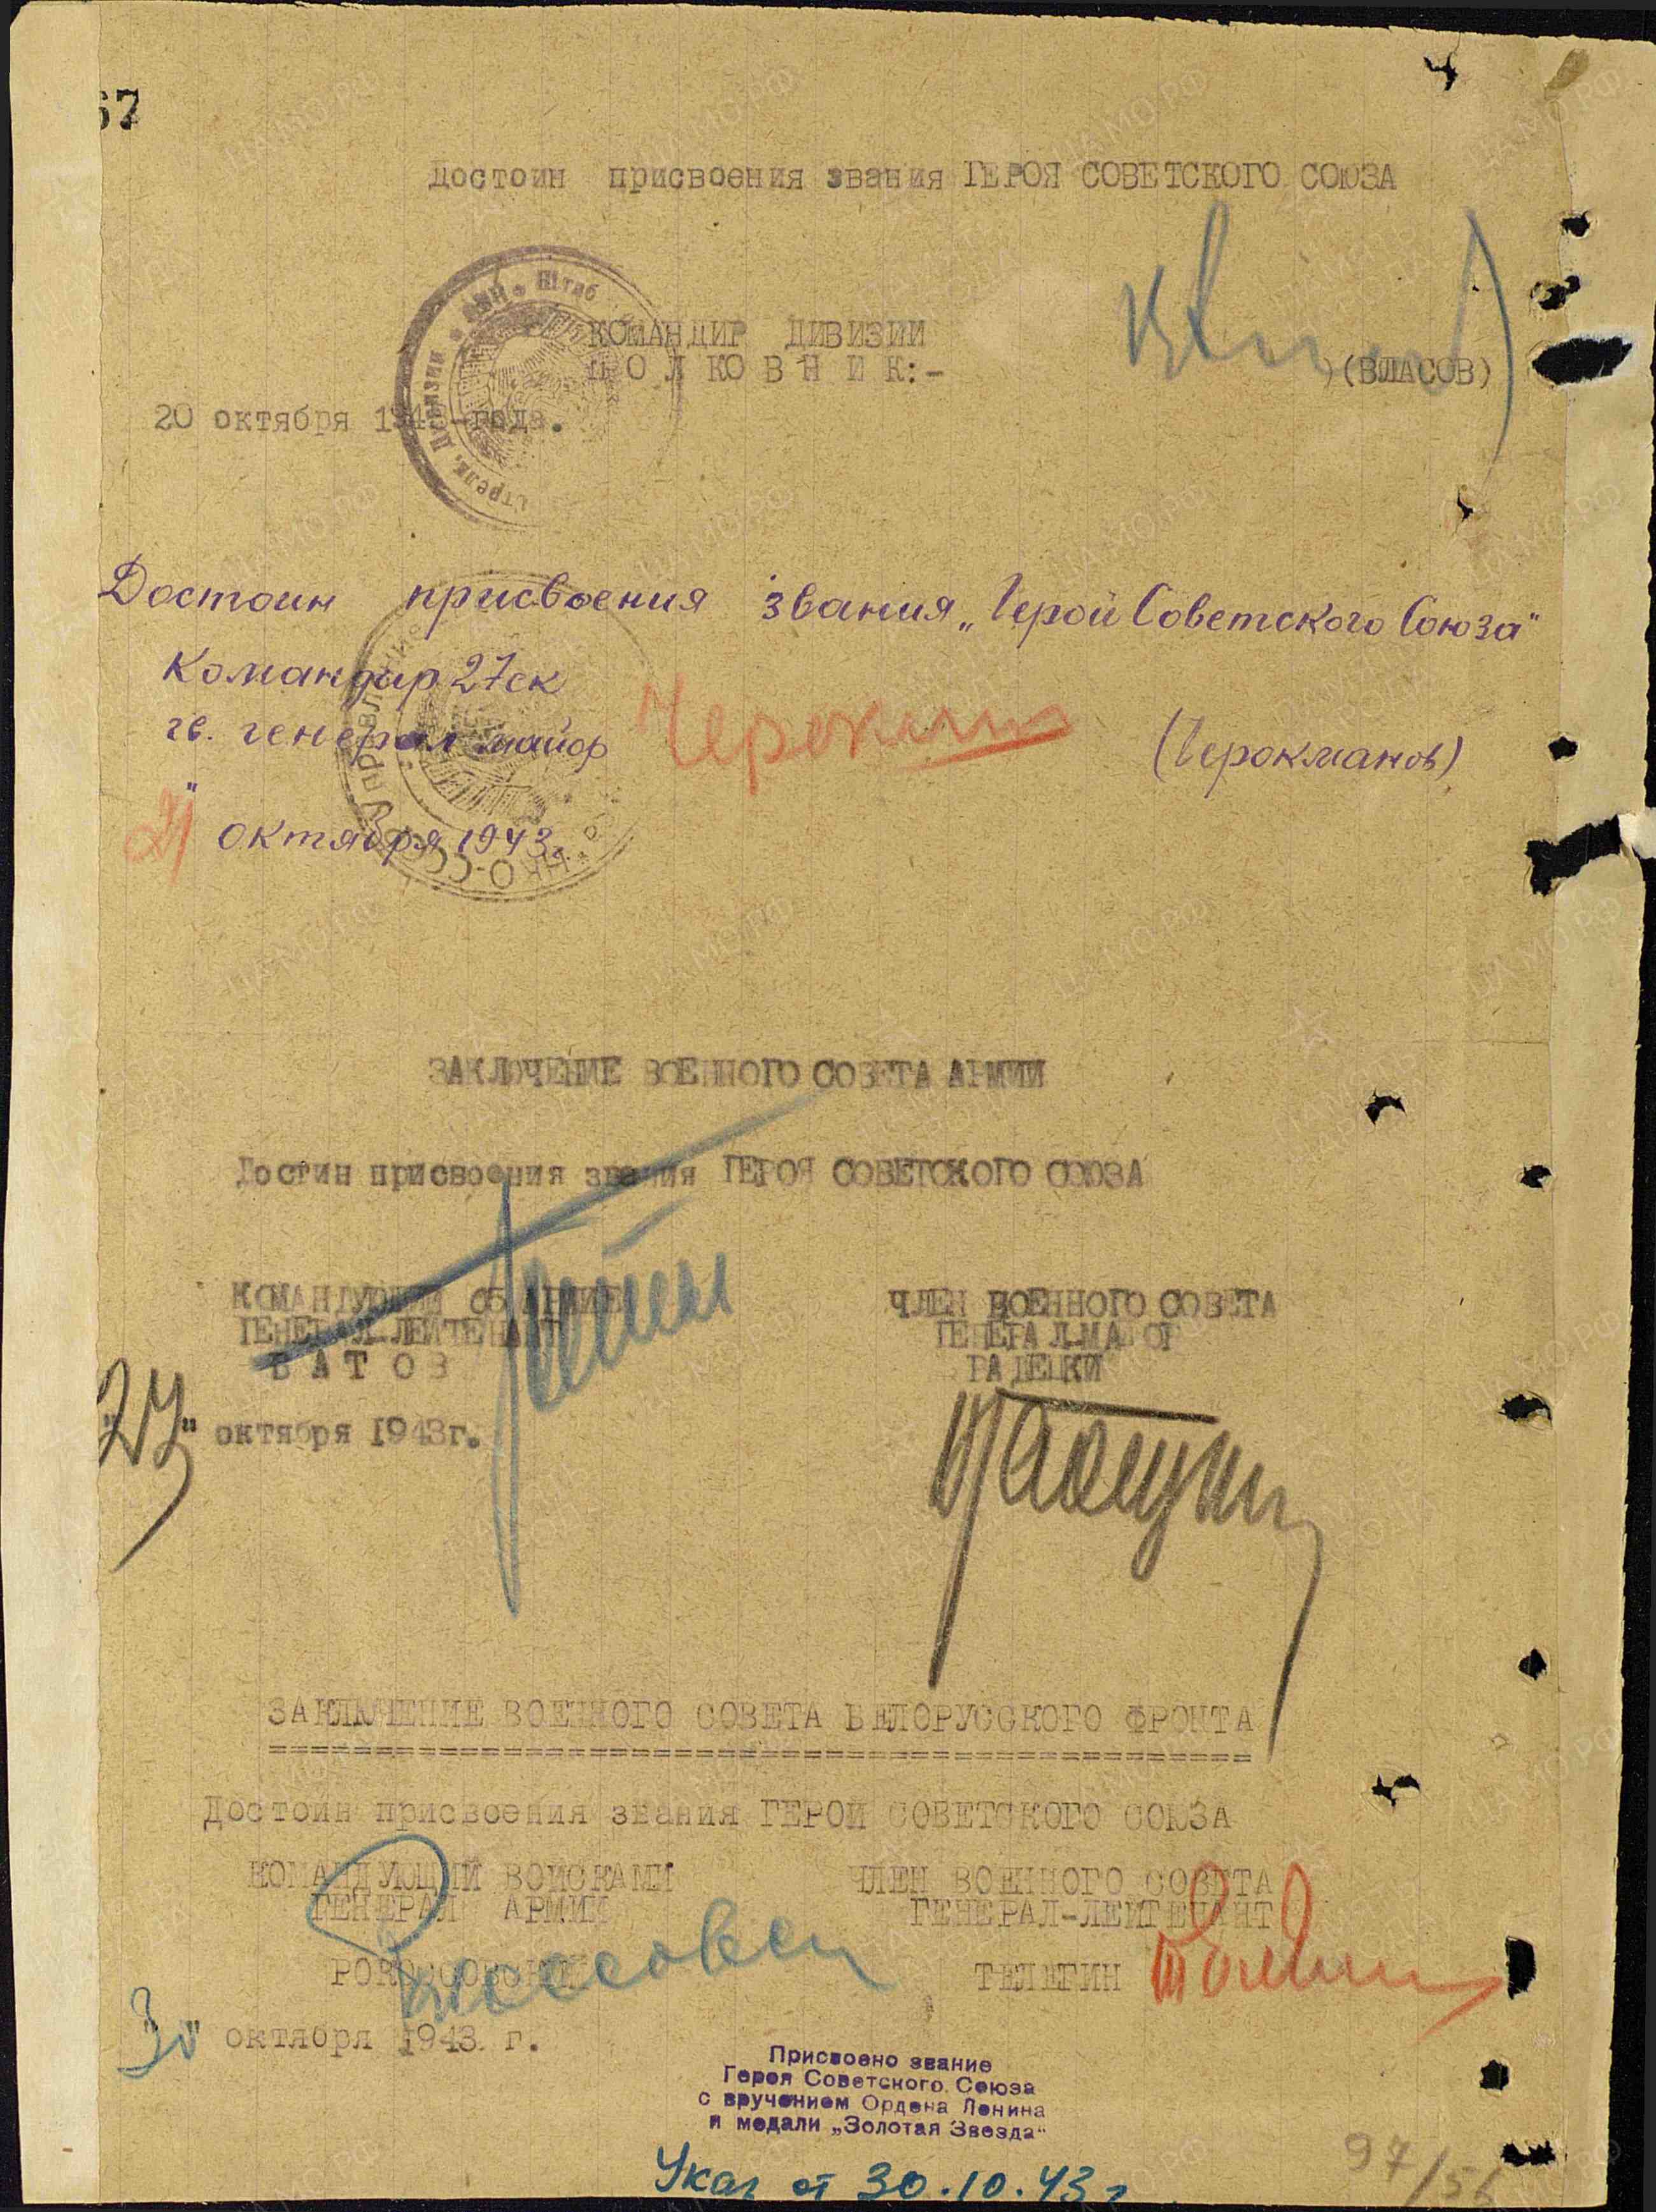 67
достоин присвоения звания ГЕРОЯ СОВЕТСКОГО СОЮЗА
КОМАНДИР ДИВИЗИИ
П О Л К О В Н И К:- (ВЛАСОВ)
20 октября 194 -года.
Штаб
Стрелк. Дивизии
Достоин присвоения звания „Герой Советского Союза"
Командир 27ск
гв. генерал майор (Черокманов)
октября 1943г.
Управление
НКО-СССР
ЗАКЛЮЧЕНИЕ ВОЕННОГО СОВЕТА АРМИИ
Достин присвоения звания ГЕРОЯ СОВЕТСКОГО СОЮЗА
КОМАНДУЮЩИЙ 65 АРМИЕЙ ЧЛЕН ВОЕННОГО СОВЕТА
ГЕНЕРАЛ-ЛЕЙТЕНАНТ ГЕНЕРАЛ-МАЙОР
Б А Т О В РАДЕЦКИ
Радецки
"27" октября 1943г.
ЗАКЛЮЧЕНИЕ ВОЕННОГО СОВЕТА БЕЛОРУССКОГО ФРОНТА
===============================================
Достоин присвоения звания ГЕРОЙ СОВЕТСКОГО СОЮЗА
КОМАНДУЮЩИЙ ВОЙСКАМИ ЧЛЕН ВОЕННОГО СОВЕТА
ГЕНЕРАЛ АРМИИ ГЕНЕРАЛ-ЛЕЙТЕНАНТ
РОКОССОВСКИЙ ТЕЛЕГИН
"30" октября 1943 г.
Присвоено звание
Героя Советского Союза
с вручением Ордена Ленина
и медали „Золотая Звезда"
Указ от 30.10.43г
97/56
ЦАМО.РФ